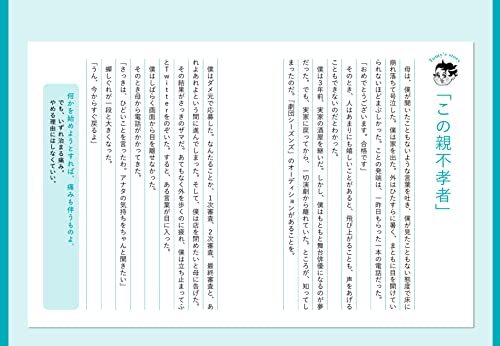 Tomy's story
「この親不孝者」
母は、僕が聞いたこともないような言葉を吐き、僕が見たこともない態度で床に
崩れ落ちて号泣した。僕は家を出た。外はひたすらに暑く、まともに目を開けてい
られないほどまぶしかった。ことの発端は、一昨日もらった一本の電話だった。
「おめでとうございます。合格です」
そのとき、人はあまりにも嬉しいことがあると、飛び上がることも、声をあげる
こともできないのだとわかった。
僕は3年前、実家の酒屋を継いだ。しかし、僕はもともと舞台俳優になるのが夢
だった。でも、実家に戻ってから、一切演劇から離れていた。ところが、知ってし
まったのだ。『劇団シーズンズ』のオーディションがあることを。
僕はダメ元で応募した。なんたることか、1次審査、2次審査、最終審査と、あ
れよあれよという間に進んでしまった。そして、僕は店を閉めたいと母に告げた。
その結果がさっきのザマだ。あてもなく外を歩くのに疲れ、僕は立ち止まってふ
とTwitterをのぞいた。すると、ある言葉が目に入った。
僕はしばらく画面から目を離せなかった。
そのとき母から電話がかかってきた。
「さっきは、ひどいことを言ったわ。アナタの気持ちをちゃんと聞きたい」
蝉しぐれが一段と大きくなった。
「うん、今からすぐ戻るよ」
何かを始めようとすれば、痛みも伴うものよ。
でも、いずれ泊まる痛み。
やめる理由にはしなくていい。